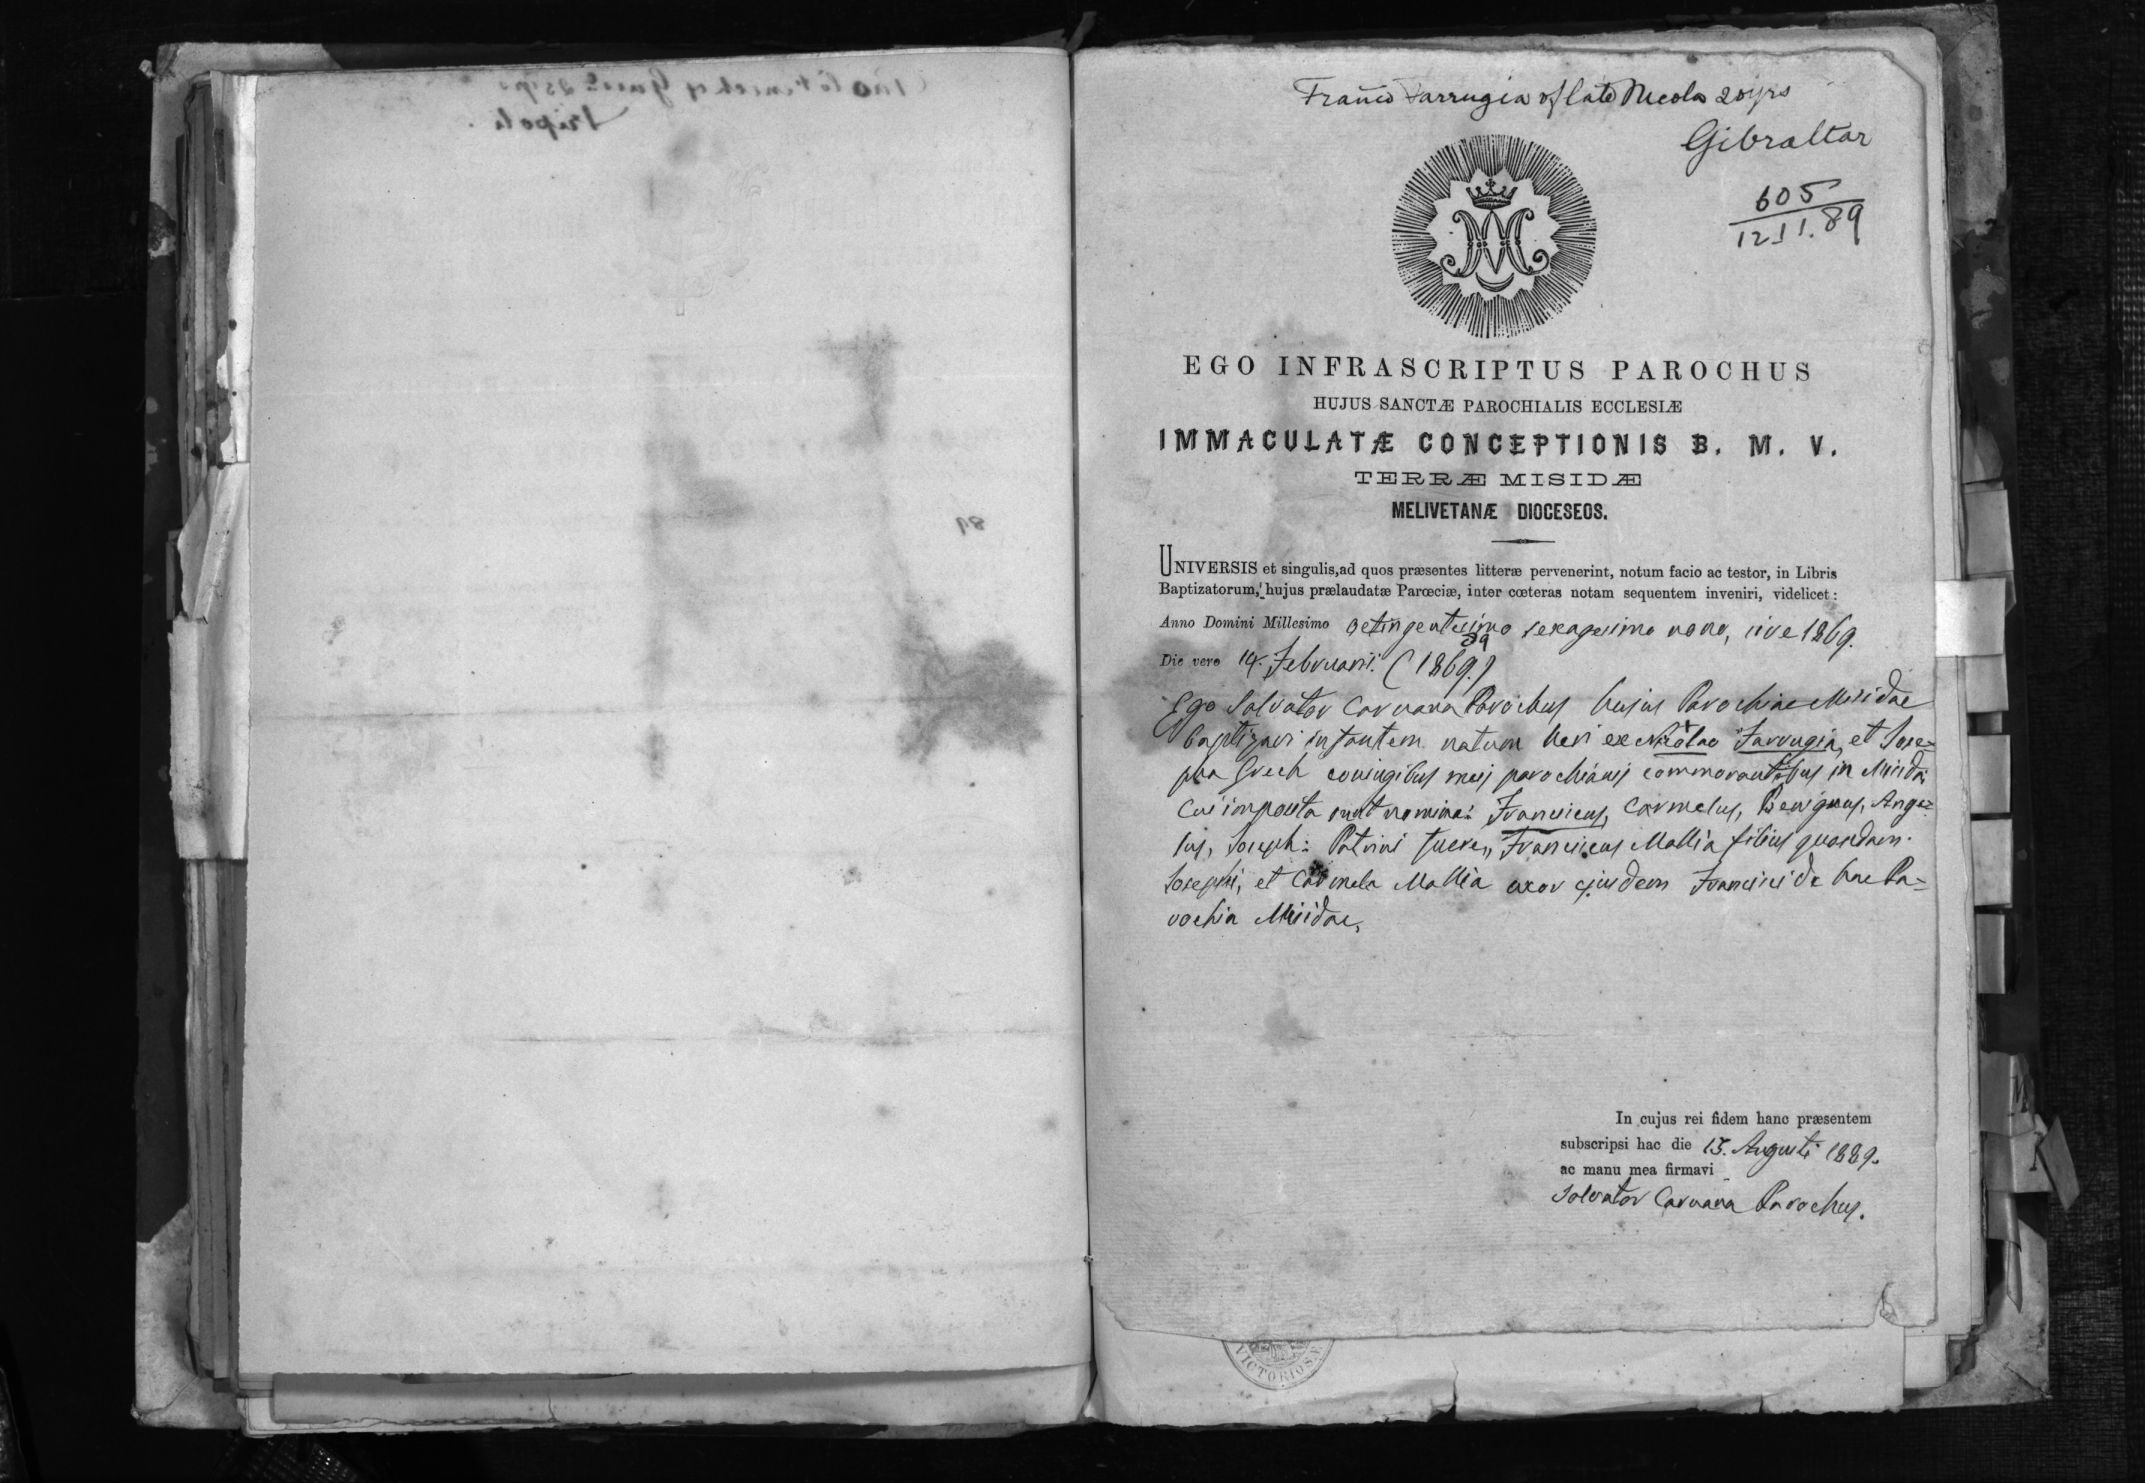 Tripoli.
89
Franco Farrugia of late Nicola 20 yrs
Gibraltar
605
12.11.89
EGO INFRASCRIPTUS PAROCHUS
HUJUS SANCTÆ PAROCHIALIS ECCLESIÆ
IMMACULATÆ CONCEPTIONIS B. M. V.
TERRÆ MISIDÆ
MELIVETANÆ DIOCESEOS.
UNIVERSIS et singulis, ad quos præsentes litteræ pervenerint, notum facio ac testor, in Libris
Baptizatorum, hujus prælaudatæ Parœciæ, inter cœteras notam sequentem inveniri, videlicet:
Anno Domini Millesimo octingentesimo sexagesimo nono, sive 1869.
Die vero 14. Februarii. (1869.)
Ego Salvator Caruana Parochus hujus Parochiae Misidae
baptizavi infantem natum heri ex Nicolao Farrugia, et Jose=
pha Grech conjugibus meis parochianis commorantibus in Misida,
Cui imposita sunt nomina: Franciscus, Carmelus, Benignus, Ange=
lus, Joseph: Patrini fuere, Franciscus Mallia filius quondam
Josephi, et Carmela Mallia uxor ejusdem Francisci de hac Pa=
rochia Misidae.
In cujus rei fidem hanc præsentem
subscripsi hac die 13. Augusti 1889.
ac manu mea firmavi
Salvator Caruana Parochus.
VICTORIOSÆ